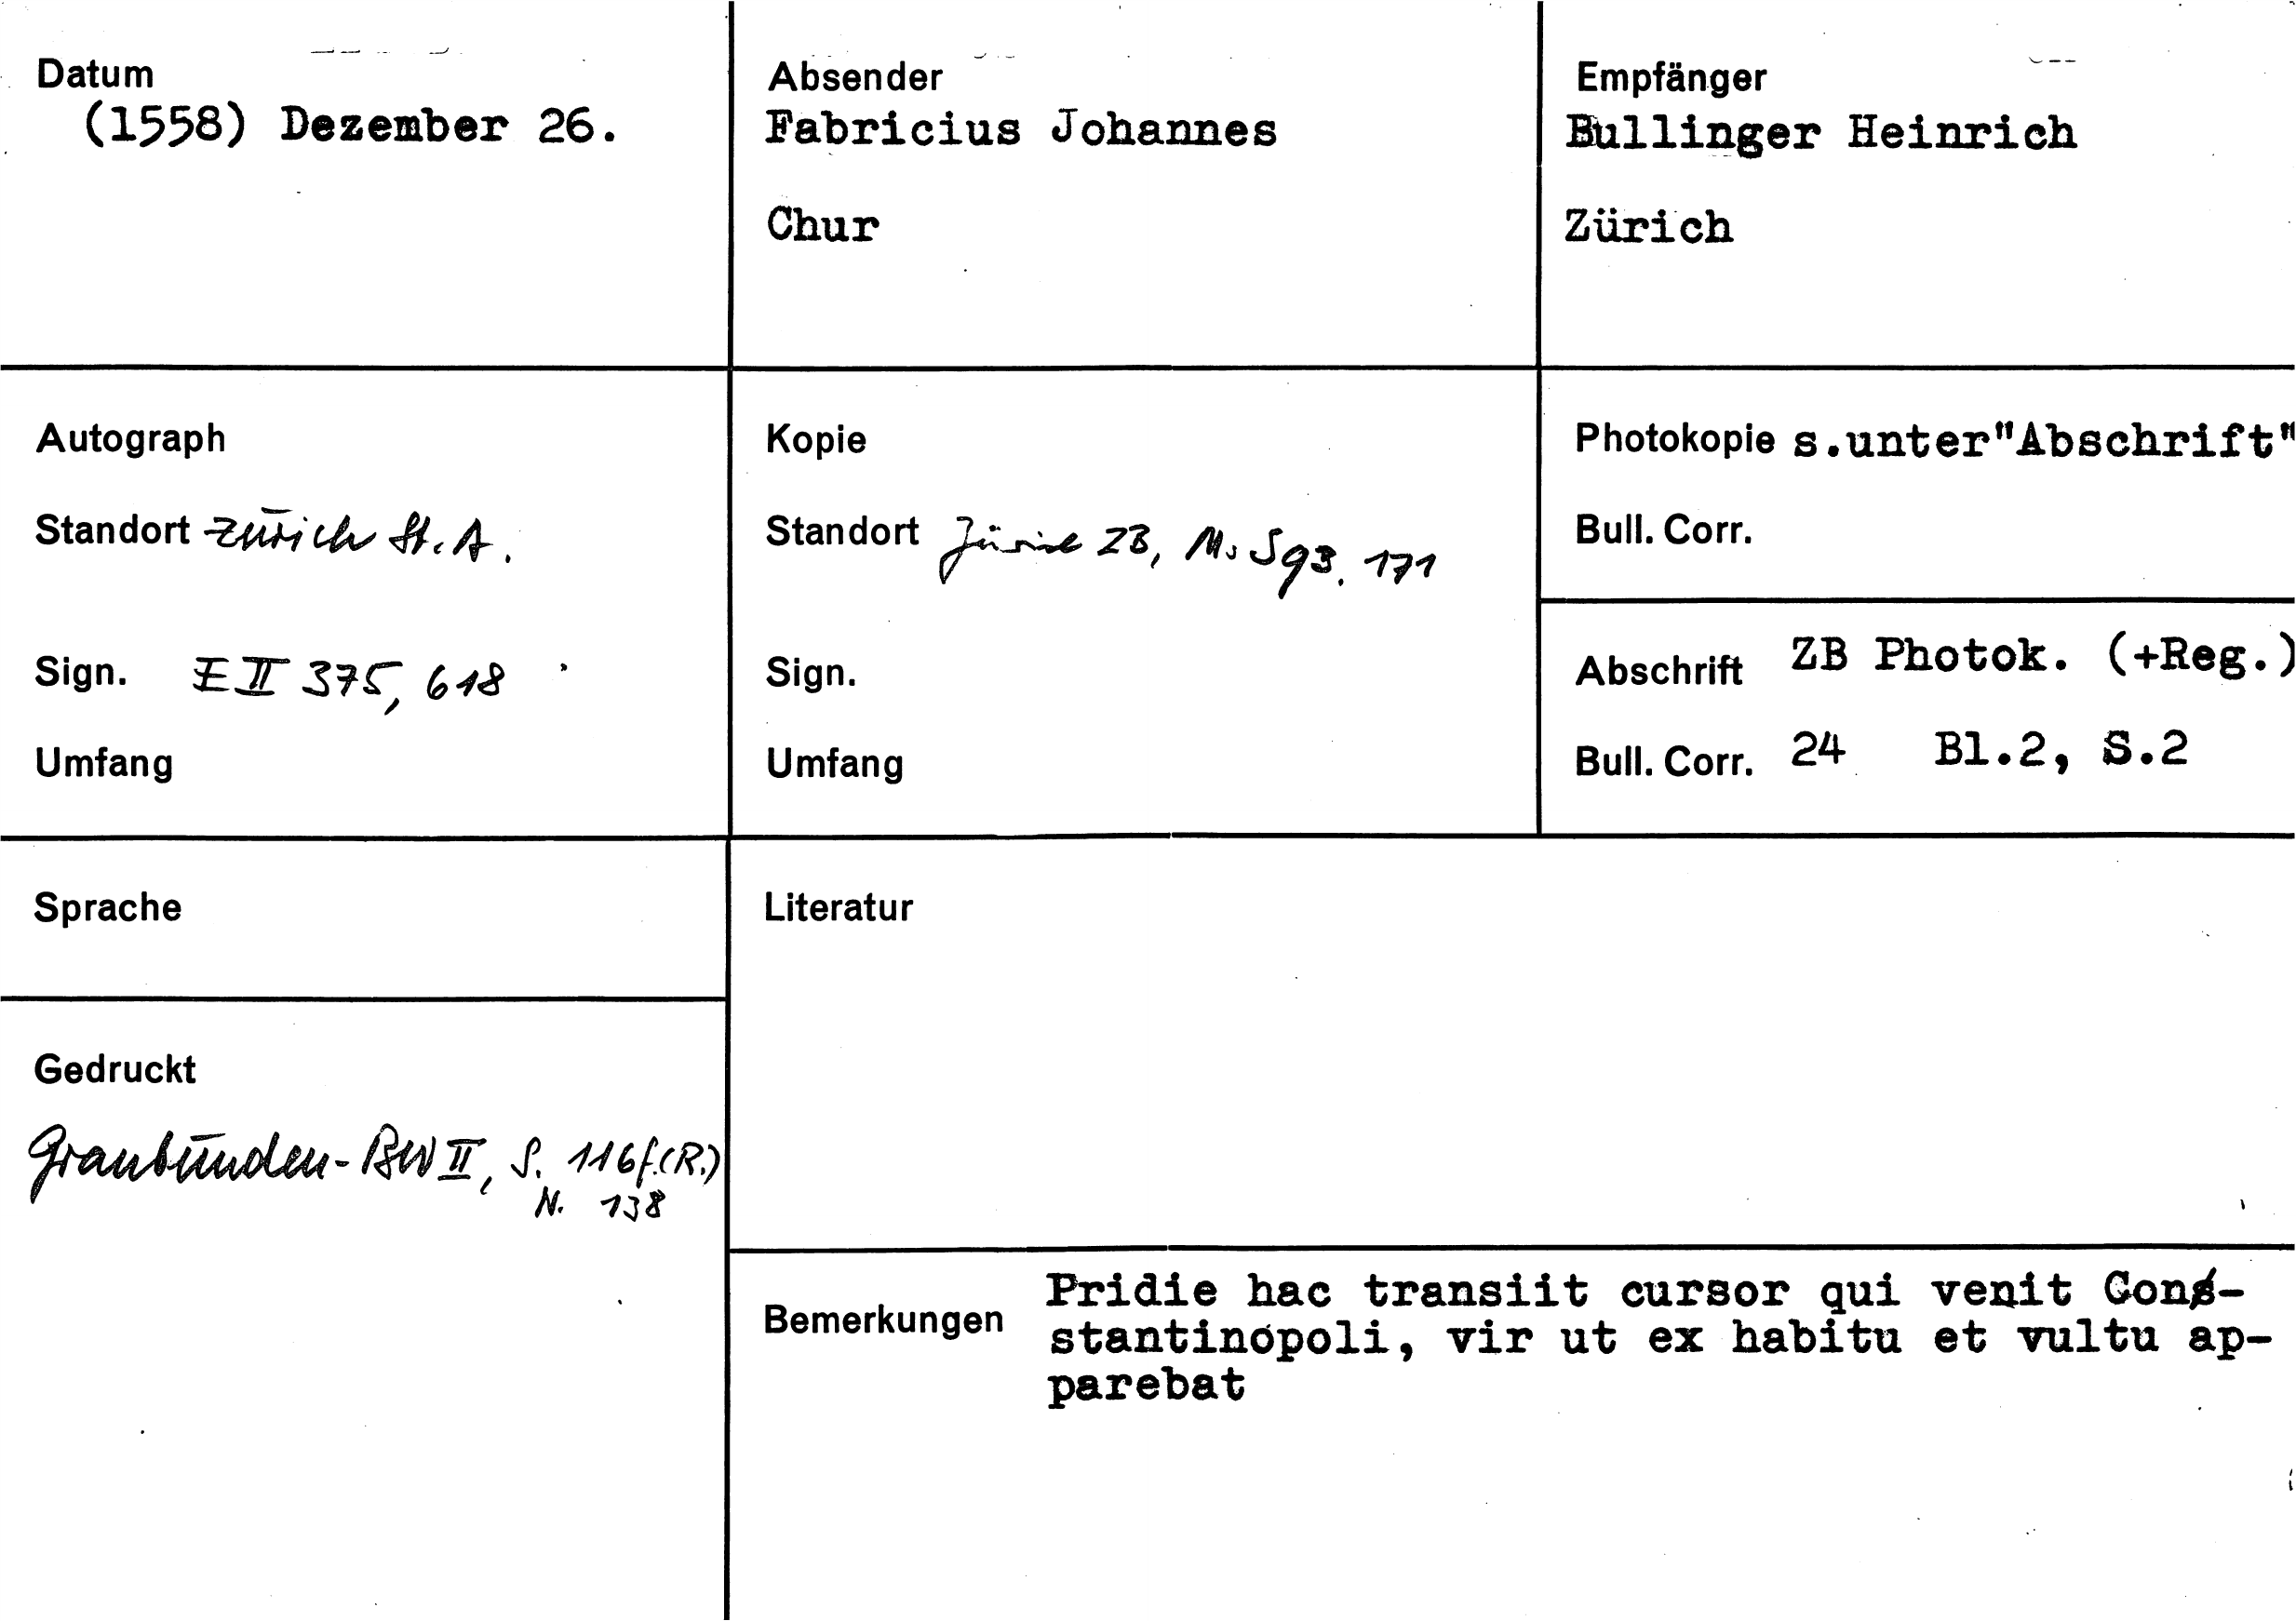 Datum
(1558) Dezember 26.
Absender
Fabricius Johannes
Chur
Empfänger
Bullinger Heinrich
Zürich
Autograph
Standort Zürich St.A.
Sign. E II 375, 618
Umfang
Kopie
Standort Zürich ZB, Ms S 93, 171
Sign.
Umfang
Photokopie s.unter"Abschrift"
Bull. Corr.
Abschrift ZB Photok. (+Reg.)
Bull. Corr. 24 Bl.2, S.2
Sprache
Gedruckt
Graubünden-BW II, S. 116f.(R.)
N. 138
Literatur
Bemerkungen
Pridie hac transiit cursor qui venit Con-
stantinopoli, vir ut ex habitu et vultu ap-
parebat